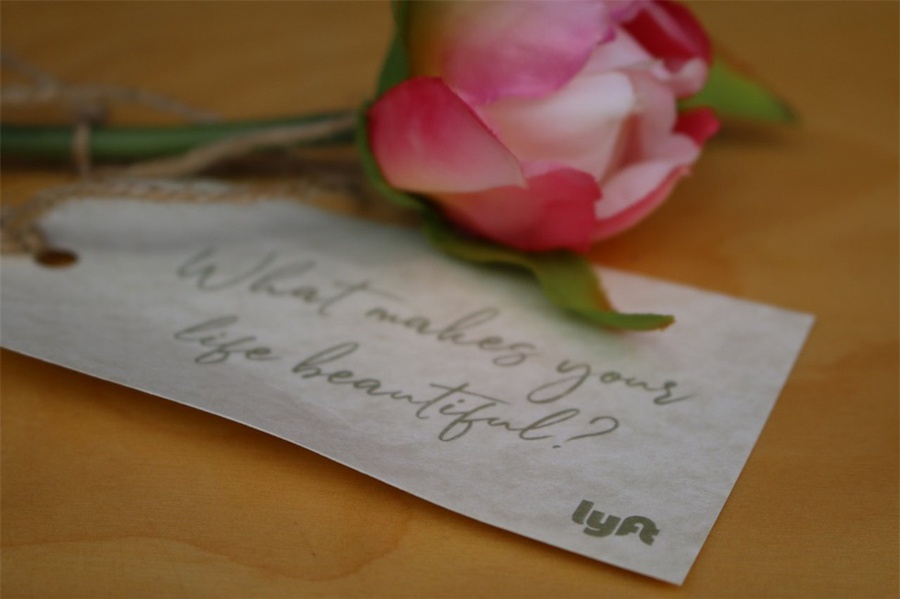 What makes your
life beautiful?
lyft